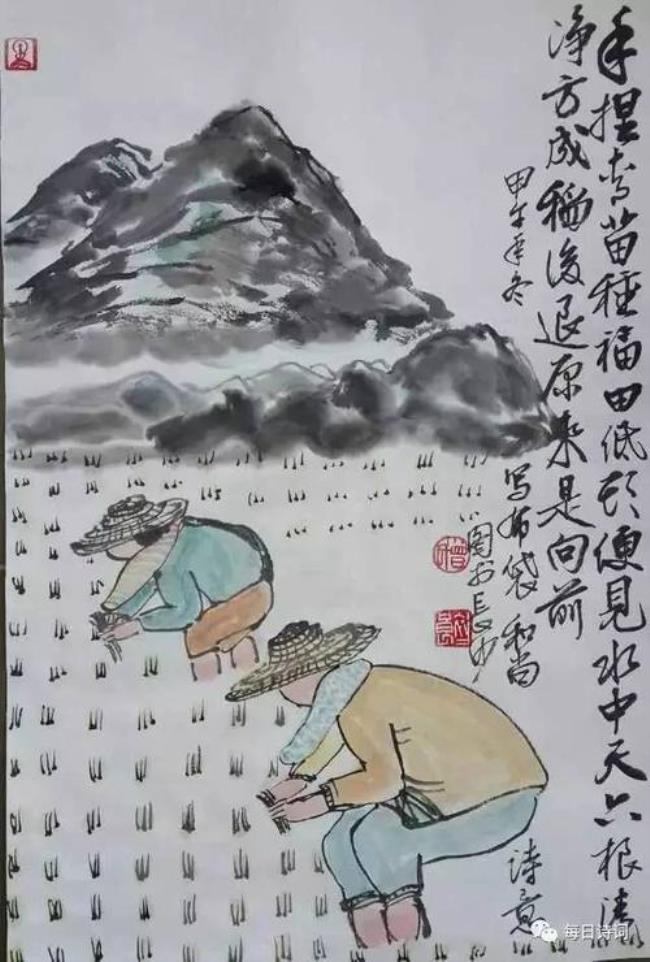 手捏青苗種福田低头便見水中天六根清
净方成稲後退原来是向前
写布袋和尚
诗意
甲午年冬
每日诗词